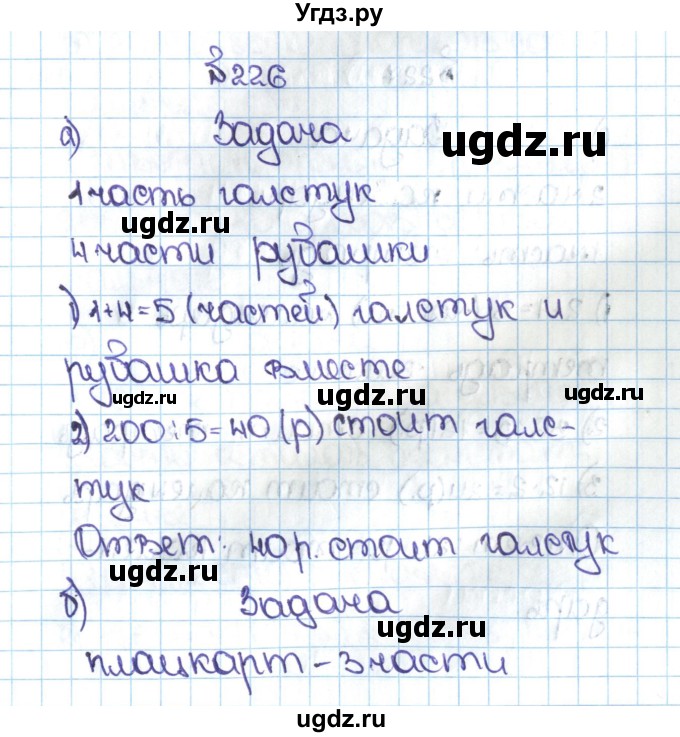 Угдз.ру
№226
а) Задача
ugdz.ru
1 часть галстук
ugdz.ru
4 части рубашки
1) 1+4=5 (частей) галстук и
ugdz.ru
рубашка вместе
ugdz.ru ugdz.ru ugdz.ru
2) 200:5=40 (р) стоит галс-
тук
Ответ: 40 р. стоит галстук
ugdz.ru
б) Задача
ugdz.ru
плацкарт - 3 части
ugdz.ru